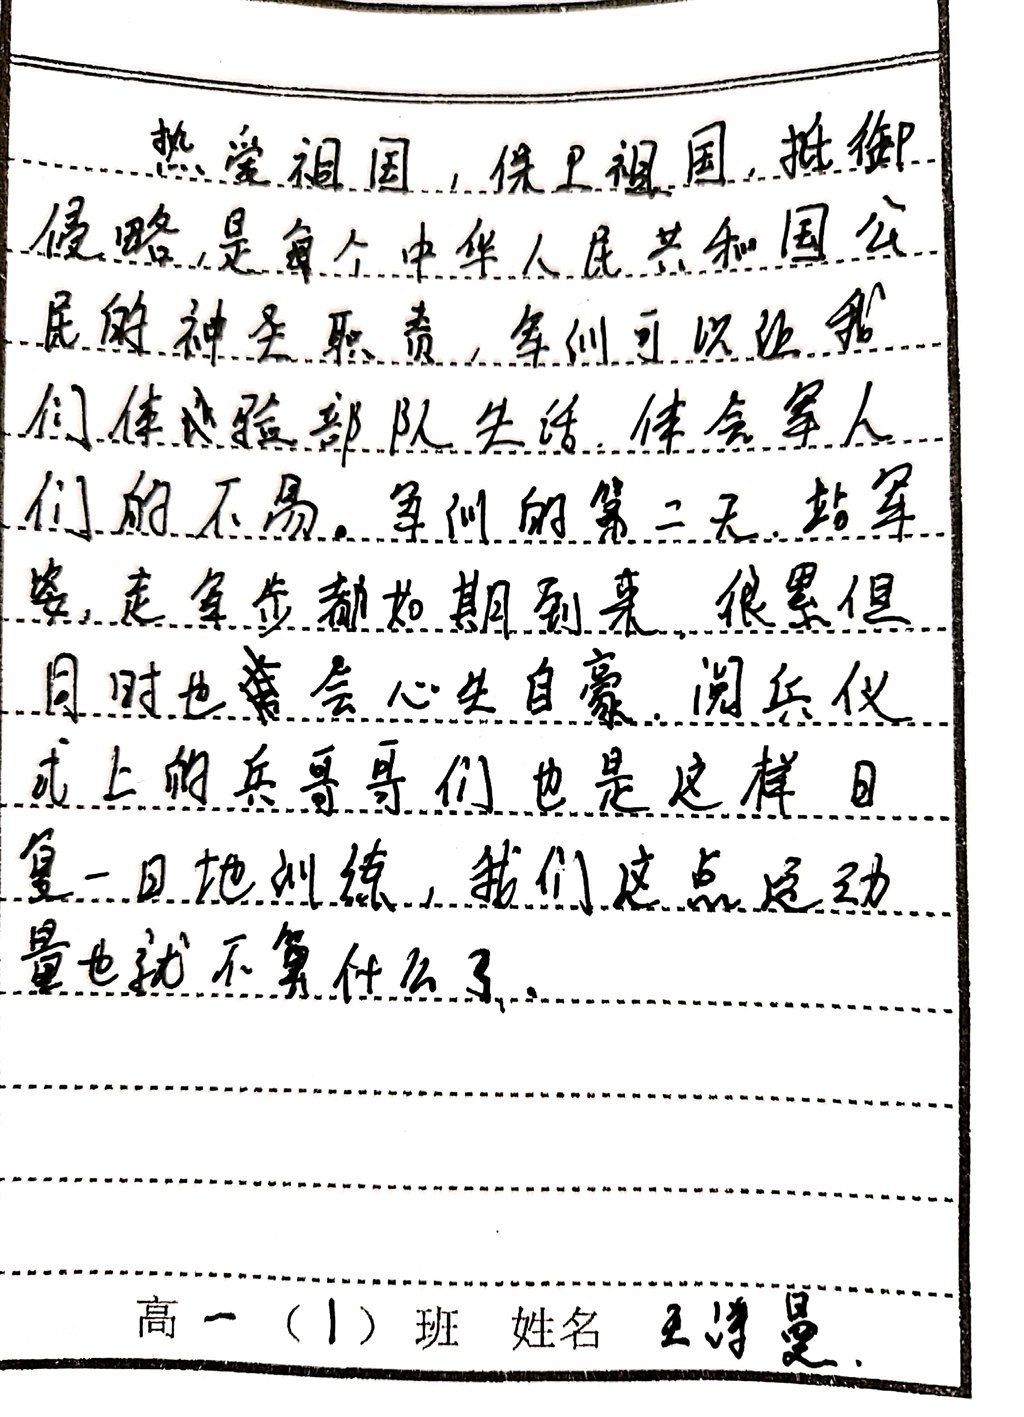 热爱祖国，保卫祖国，抵御
侵略，是每个中华人民共和国公
民的神圣职责，军训可以让我
们体验部队生活，体会军人
们的不易。军训的第二天，站军
姿，走军步都如期到来，很累但
同时也会心生自豪，阅兵仪
式上的兵哥哥们也是这样日
复一日地训练，我们这点运动
量也就不算什么了。
高一（1）班 姓名 王 曼